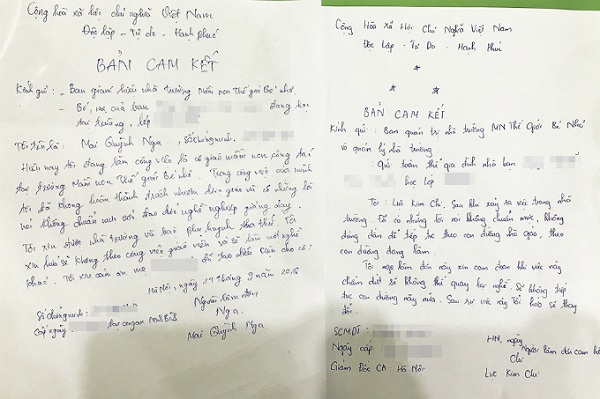 Cộng hòa xã hội chủ nghĩa Việt Nam
Độc lập - Tự do - Hạnh phúc
BẢN CAM KẾT
Kính gửi: - Ban giám hiệu nhà trường Mầm non Thế giới Bé nhỏ.
- Bố, mẹ của bạn đang học
tại trường, lớp
Tôi tên là: Mai Quỳnh Nga, Số chứng minh:
Hiện nay tôi đang làm công việc là cô giáo mầm non công tác
tại trường Mầm non Thế giới Bé nhỏ. Trong công việc của mình
tôi đã không hoàn thành trách nhiệm được giao và có những lời
nói không chuẩn mực với đạo đức nghề nghiệp giảng dạy.
Tôi xin được nhà trường và bậc phụ huynh tha thứ. Tôi
xin hứa sẽ không theo công việc giáo viên và sẽ làm nơi nghề
khác. Tôi xin cảm ơn mẹ đã tạo điều kiện cho cô!
Hà Nội, ngày 14 tháng 9 năm 2016
Số chứng minh:
Người làm đơn
Cấp ngày: tại công an
Nga.
Mai Quỳnh Nga
Cộng Hòa Xã Hội Chủ Nghĩa Việt Nam
Độc Lập - Tự Do - Hạnh Phúc
* *
*
BẢN CAM KẾT
Kính gửi: Ban quản trị nhà trường MN Thế Giới Bé Nhỏ
và quản lý nhà trường.
Qúi toàn thể gia đình nhà bạn
học lớp
Tôi: Lưu Kim Chi. Sau khi xảy ra việc trong nhà
trường. Đã có những lời nói không chuẩn mực, không
đúng đắn để tiếp tục theo con đường nhà giáo, theo
con đường đang làm.
Tôi nay làm đơn này xin cam đoan khi việc này
chấm dứt sẽ không thể quay lại nghề. Sẽ không tiếp
tục con đường này nữa. Sau sự việc này Tôi hứa sẽ thay
đổi.
SCMDT:
HN, ngày
Ngày cấp:
Người làm đơn cam kết
Giám Đốc CA Hà Nội
Chi
Lưu Kim Chi